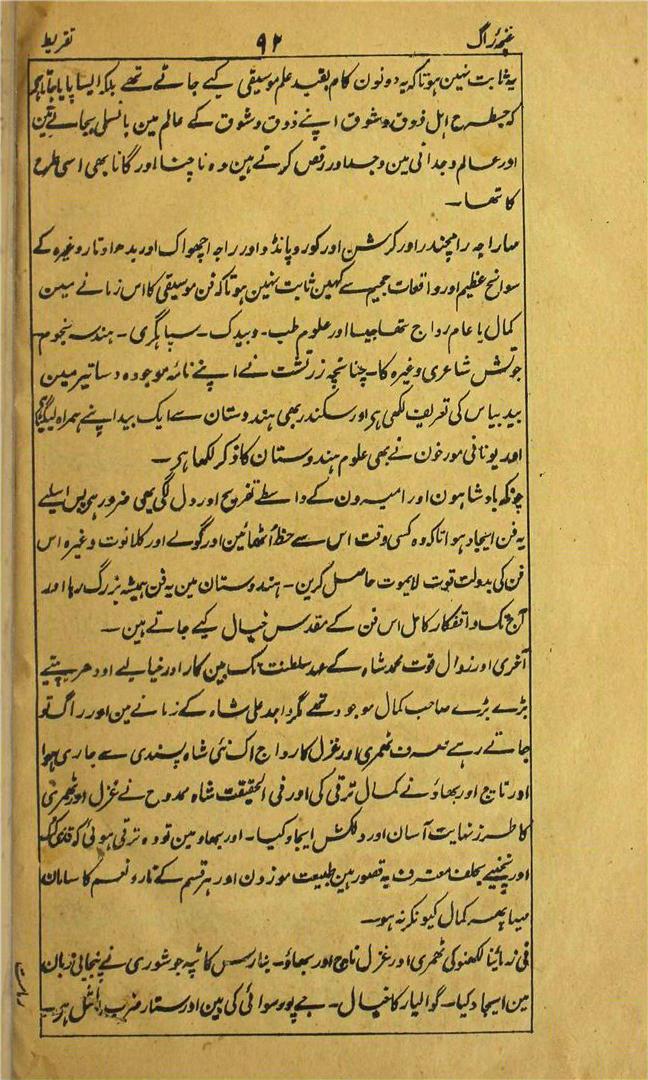 غنچۂ راگ ۹۲ تقریظ
یہ ثابت نہین ہوتا کہ یہ دونون کام بقید علم موسیقی کیے جاتے تھے بلکہ ایسا پایا جاتا ہے
کہ جسطرح اہل ذوق و شوق اپنے ذوق و شوق کے عالم مین بانسلی بجاتے ہین
اور عالم وجدانی مین وجد اور رقص کرتے ہین وہ ناچنا اور گانا بھی اسی طرح
کا تھا۔
مہاراجہ رامچندر اور کرشن اور کورو پانڈو اور راجہ اچھواک اور بدھ اوتار وغیرہ کے
سوانح عظیم اور واقعات جمیم سے کہین ثابت نہین ہوتا کہ فن موسیقی کا اس زمانے مین
کمال یا عام رواج تھا جیسا اور علوم طب۔ ویدک۔ سپاہگری۔ ہندسہ نجوم۔
جوتش شاعری وغیرہ کا۔ چنانچہ زرتشت نے اپنے نامہ موجودہ دساتیر مین
بید بیاس کی تعریف لکھی ہی اور سکندر بھی ہندوستان سے ایک بید اپنے ہمراہ لیگیا
اور یونانی مورخون نے بھی علوم ہندوستان کا ذکر لکھا ہی۔
چونکہ بادشاہون اور امیرون کے واسطے تفریح اور دل لگی بھی ضرور ہی پس اسلیے
یہ فن ایجاد ہوا تاکہ وہ کسی وقت اس سے حظ اُٹھائین اور گویے اور کلانوت وغیرہ اس
فن کی بدولت قوت لایموت حاصل کرین۔ ہندوستان مین یہ فن ہمیشہ بزرگ رہا اور
آج تک واقفکار کامل اس فن کے مقدس خیال کیے جاتے ہین۔
آخری اور زوال قوت محمد شاہ کے عہد سلطنت تک بین کار اور خیالیے اور دھرپتیے
بڑے بڑے صاحب کمال موجود تھے مگر واجد علی شاہ کے زمانے مین اور راگ تو
جاتے رہے صرف ٹھمری اور غزل کا رواج اک نئی شاہ پسندی سے جاری ہوا
اور ناچ اور بھاؤ نے کمال ترقی کی اور فی الحقیقت شاہ ممدوح نے غزل اور ٹھمری
کا طرز نہایت آسان اور دلکش ایجاد کیا۔ اور بھاو مین تو وہ ترقی ہوئی کہ
اور بیحلف معترف یہ قصور ہین طبیعت موزون اور ہر قسم کے ناز و نعم کا سامان
مہیا پھر کمال کیونکر نہ ہو۔
فی زمانینا لکھنؤ کی ٹھمری اور غزل ناچ اور بھاؤ۔ بنارس کا ٹپہ جو شوری نے پنجابی زبان
مین ایجاد کیا۔ گوالیار کا خیال۔ جے پور سوائی کی بین اور ستار ضرب المثل ہی۔